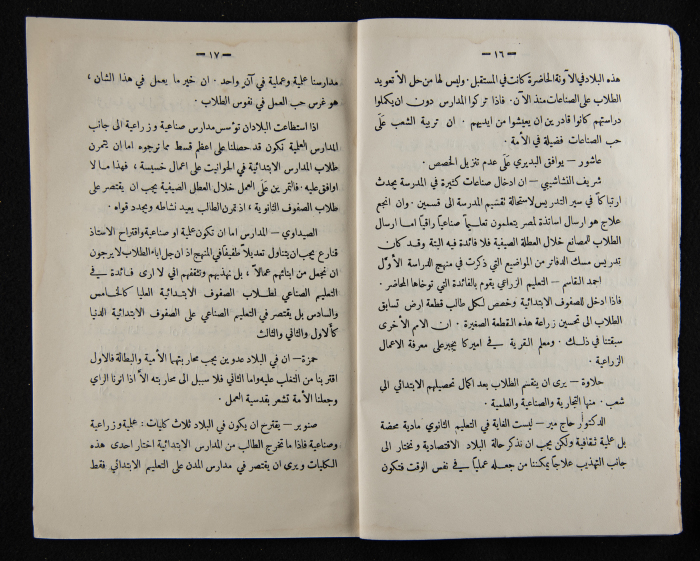 — ١٦ —
هذه البلاد في الآونة الحاضرة كانت في المستقبل. وليس لها من حل الا تعويد
الطلاب على الصناعات منذ الآن. فاذا تركوا المدارس دون ان يكملوا
دراستهم كانوا قادرين ان يعيشوا من ايديهم. ان تربية الشعب على
حب الصناعات فضيلة في الأمة.
عاشور – يوافق البديري على عدم تنزيل الحصص.
شريف النشاشيبي – ان ادخال صناعات كثيرة في المدرسة يحدث
ارتباكاً في سير التدريس لاستحالة تقسيم المدرسة الى قسمين. وان انجع
علاج هو ارسال اساتذة لمصر يتعلمون تعليماً صناعياً راقياً اما ارسال
الطلاب المصانع خلال العطلة الصيفية فلا فائدة فيه البتة وقد كان
تدريس مسك الدفاتر من المواضيع التي ذكرت في منهج الدراسة الأول
احمد القاسم – التعليم الزراعي يقوم بالفائدة التي توخاها المحاضر.
فاذا ادخل للصفوف الابتدائية وخصص لكل طالب قطعة ارض تسابق
الطلاب الى تحسين زراعة هذه القطعة الصغيرة. ان الامم الأخرى
سبقتنا في ذلك. ومعلم القرية في اميركا يجبر على معرفة الاعمال
الزراعية.
حلاوة – يرى ان ينقسم الطلاب بعد اكمال تحصيلهم الابتدائي الى
شعب. منها التجارية والصناعية والعلمية.
الدكتور حاج مير – ليست الغاية في التعليم الثانوي مادية محضة
بل عملية ثقافية ولكن يجب ان نذكر حالة البلاد الاقتصادية ونختار الى
جانب التهذيب علاجاً يمكننا من جعله عملياً في نفس الوقت فتكون
— ١٧ —
مدارسنا علمية وعملية في آن واحد. ان خير ما يعمل في هذا الشان،
هو غرس حب العمل في نفوس الطلاب.
اذا استطاعت البلاد ان تؤسس مدارس صناعية وزراعية الى جانب
المدارس العلمية نكون قد حصلنا على اعظم قسط مما نرجوه اما ان يتمرن
طلاب المدارس الابتدائية في الحوانيت على اعمال خسيسة، فهذا ما لا
اوافق عليه. فالتمرين على العمل خلال العطل الصيفية يجب ان يقتصر على
طلاب الصفوف الثانوية، اذ تمرن الطالب يعيد نشاطه ويجدد قواه.
الصيداوي – المدارس اما ان تكون علمية او صناعية واقتراح الاستاذ
قنازع يجب ان يتناول تعديلاً طفيفاً في المنهج اذ ان جل اباء الطلاب لا يرجون
ان نجعل من ابنائهم عمالاً، بل نهذبهم ونثقفهم اني لا ارى فائدة في
التعليم الصناعي لطلاب الصفوف الابتدائية العليا كالخامس
والسادس بل يقتصر في التعليم الصناعي على الصفوف الابتدائية الدنيا
كالأول والثاني والثالث
حمزة – ان في البلاد عدوين يجب محاربتهما الأمية والبطالة فالاول
اقتربنا من التغلب عليه واما الثاني فلا سبيل الى محاربته الا اذا انرنا الراي
وجعلنا الأمة تشعر بقدسية العمل.
صنوبر – يقترح ان يكون في البلاد ثلاث كليات: علمية وزراعية
وصناعية فاذا ما تخرج الطالب من المدارس الابتدائية اختار احدى هذه
الكليات ويرى ان يقتصر في مدارس المدن على التعليم الابتدائي فقط